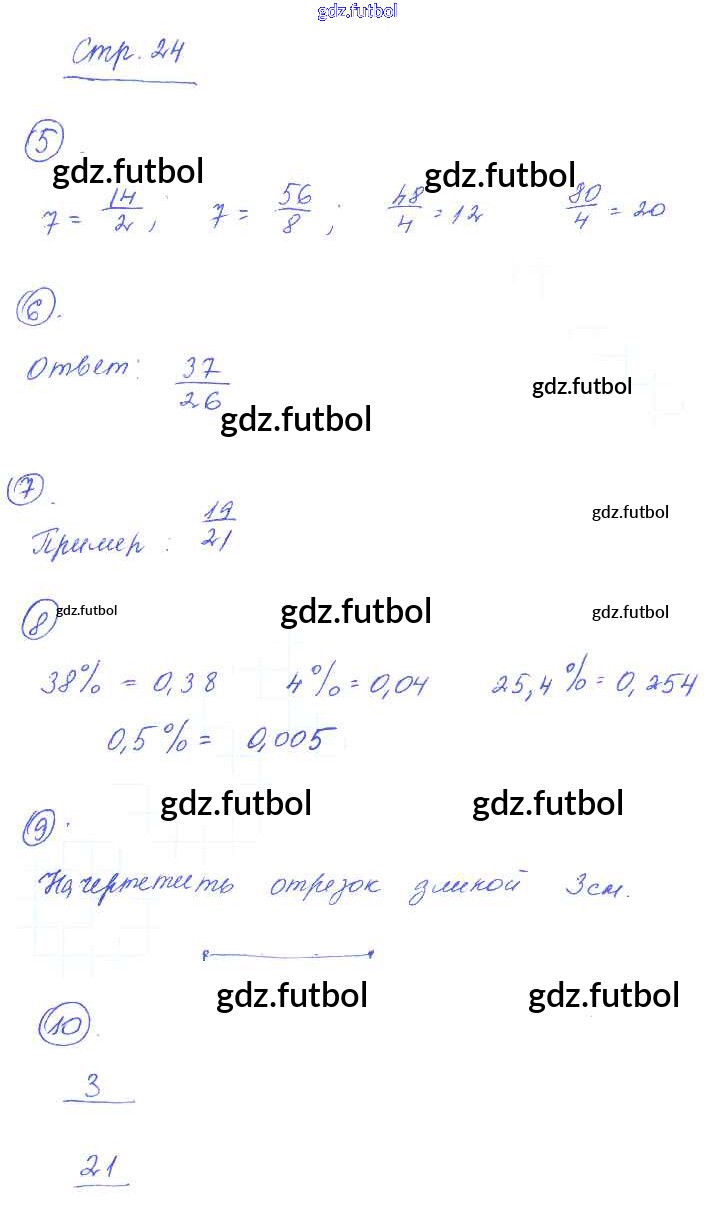 gdz.futbol
Стр. 24
5
gdz.futbol gdz.futbol
7 = 14/2, 7 = 56/8; 48/4 = 12 80/4 = 20
6.
Ответ: 37/26
gdz.futbol
gdz.futbol
7.
gdz.futbol
Пример: 19/21
8 gdz.futbol gdz.futbol gdz.futbol
38% = 0,38 4% = 0,04 25,4% = 0,254
0,5% = 0,005
gdz.futbol gdz.futbol
9.
отрезок длиной 3см.
gdz.futbol gdz.futbol
10.
3
21